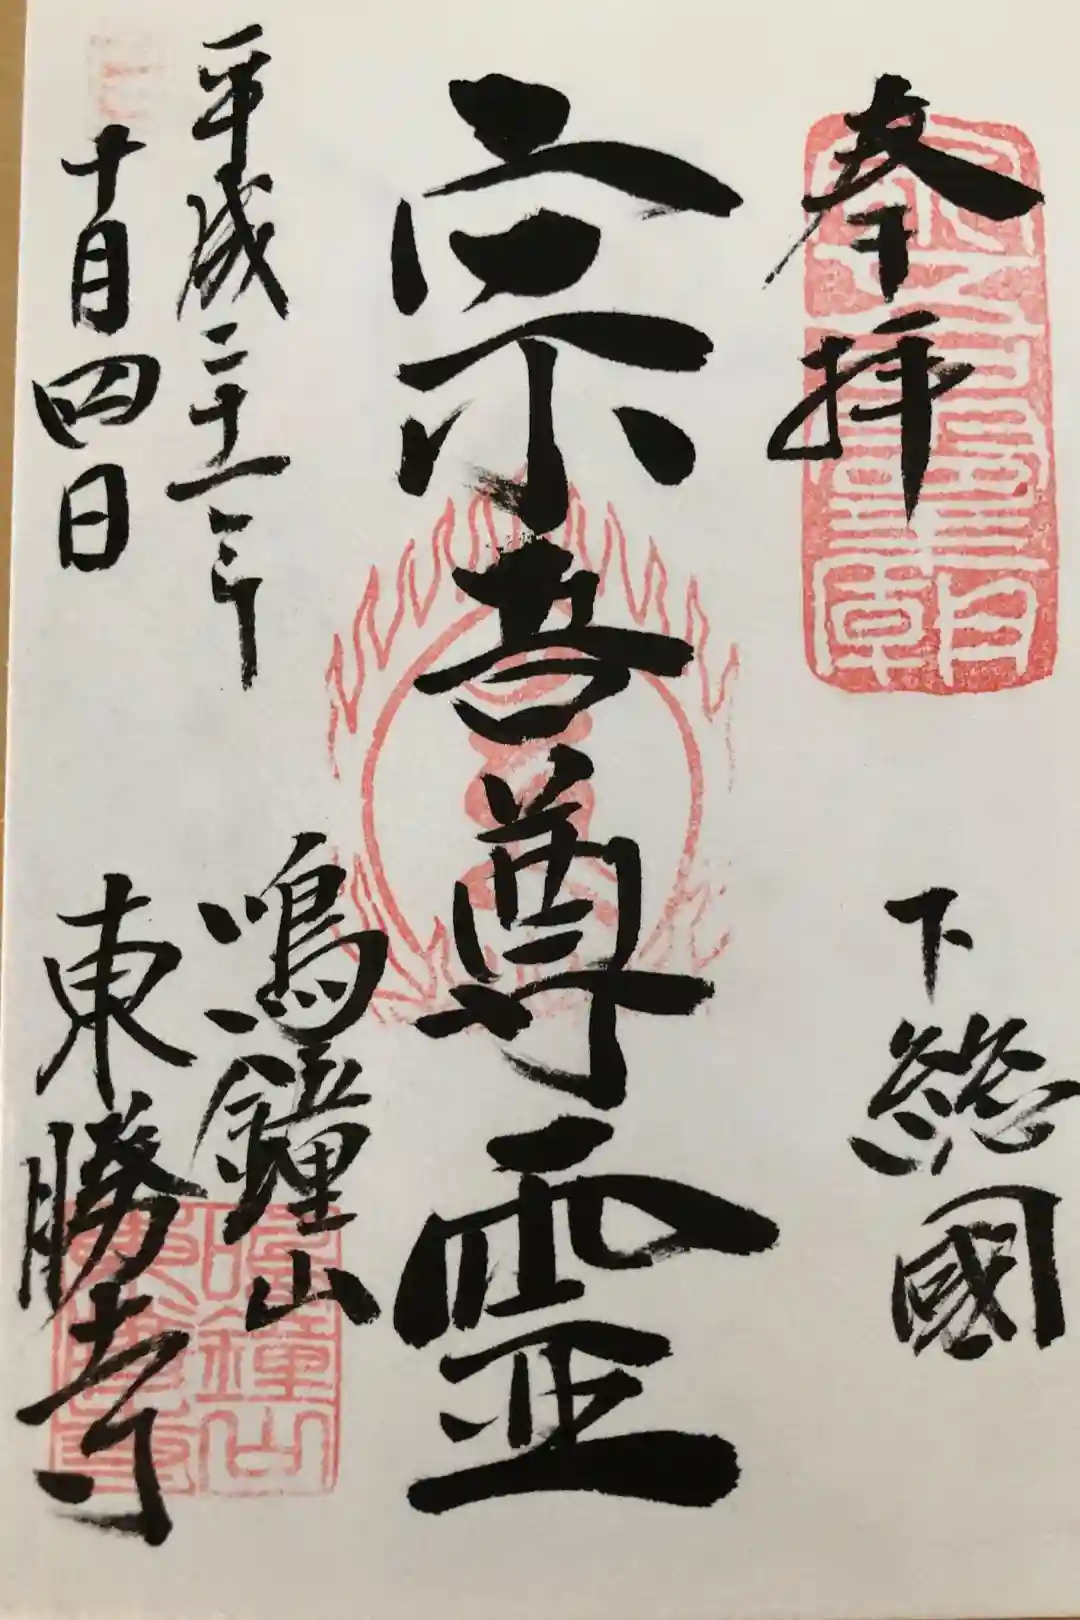 奉拝
下総國
宗吾尊霊
平成二十一年
十月四日
鳴鐘山
東勝寺
鳴鐘山
東勝寺